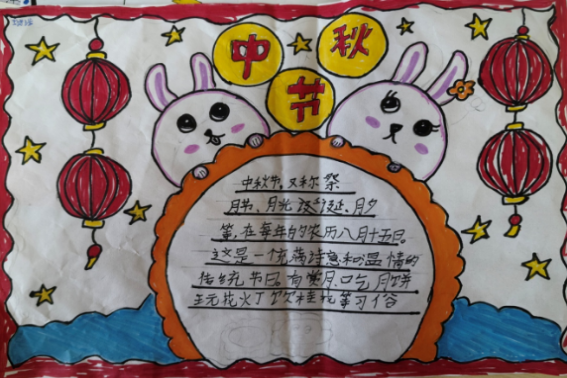 中秋节
中秋节,又称 祭
月节、月光 诞、月夕
等,在每年的农历八月十五日。
这是一个充满诗意和温情的
传统节日。有赏月、吃月饼
玩花灯 饮桂花 等习俗